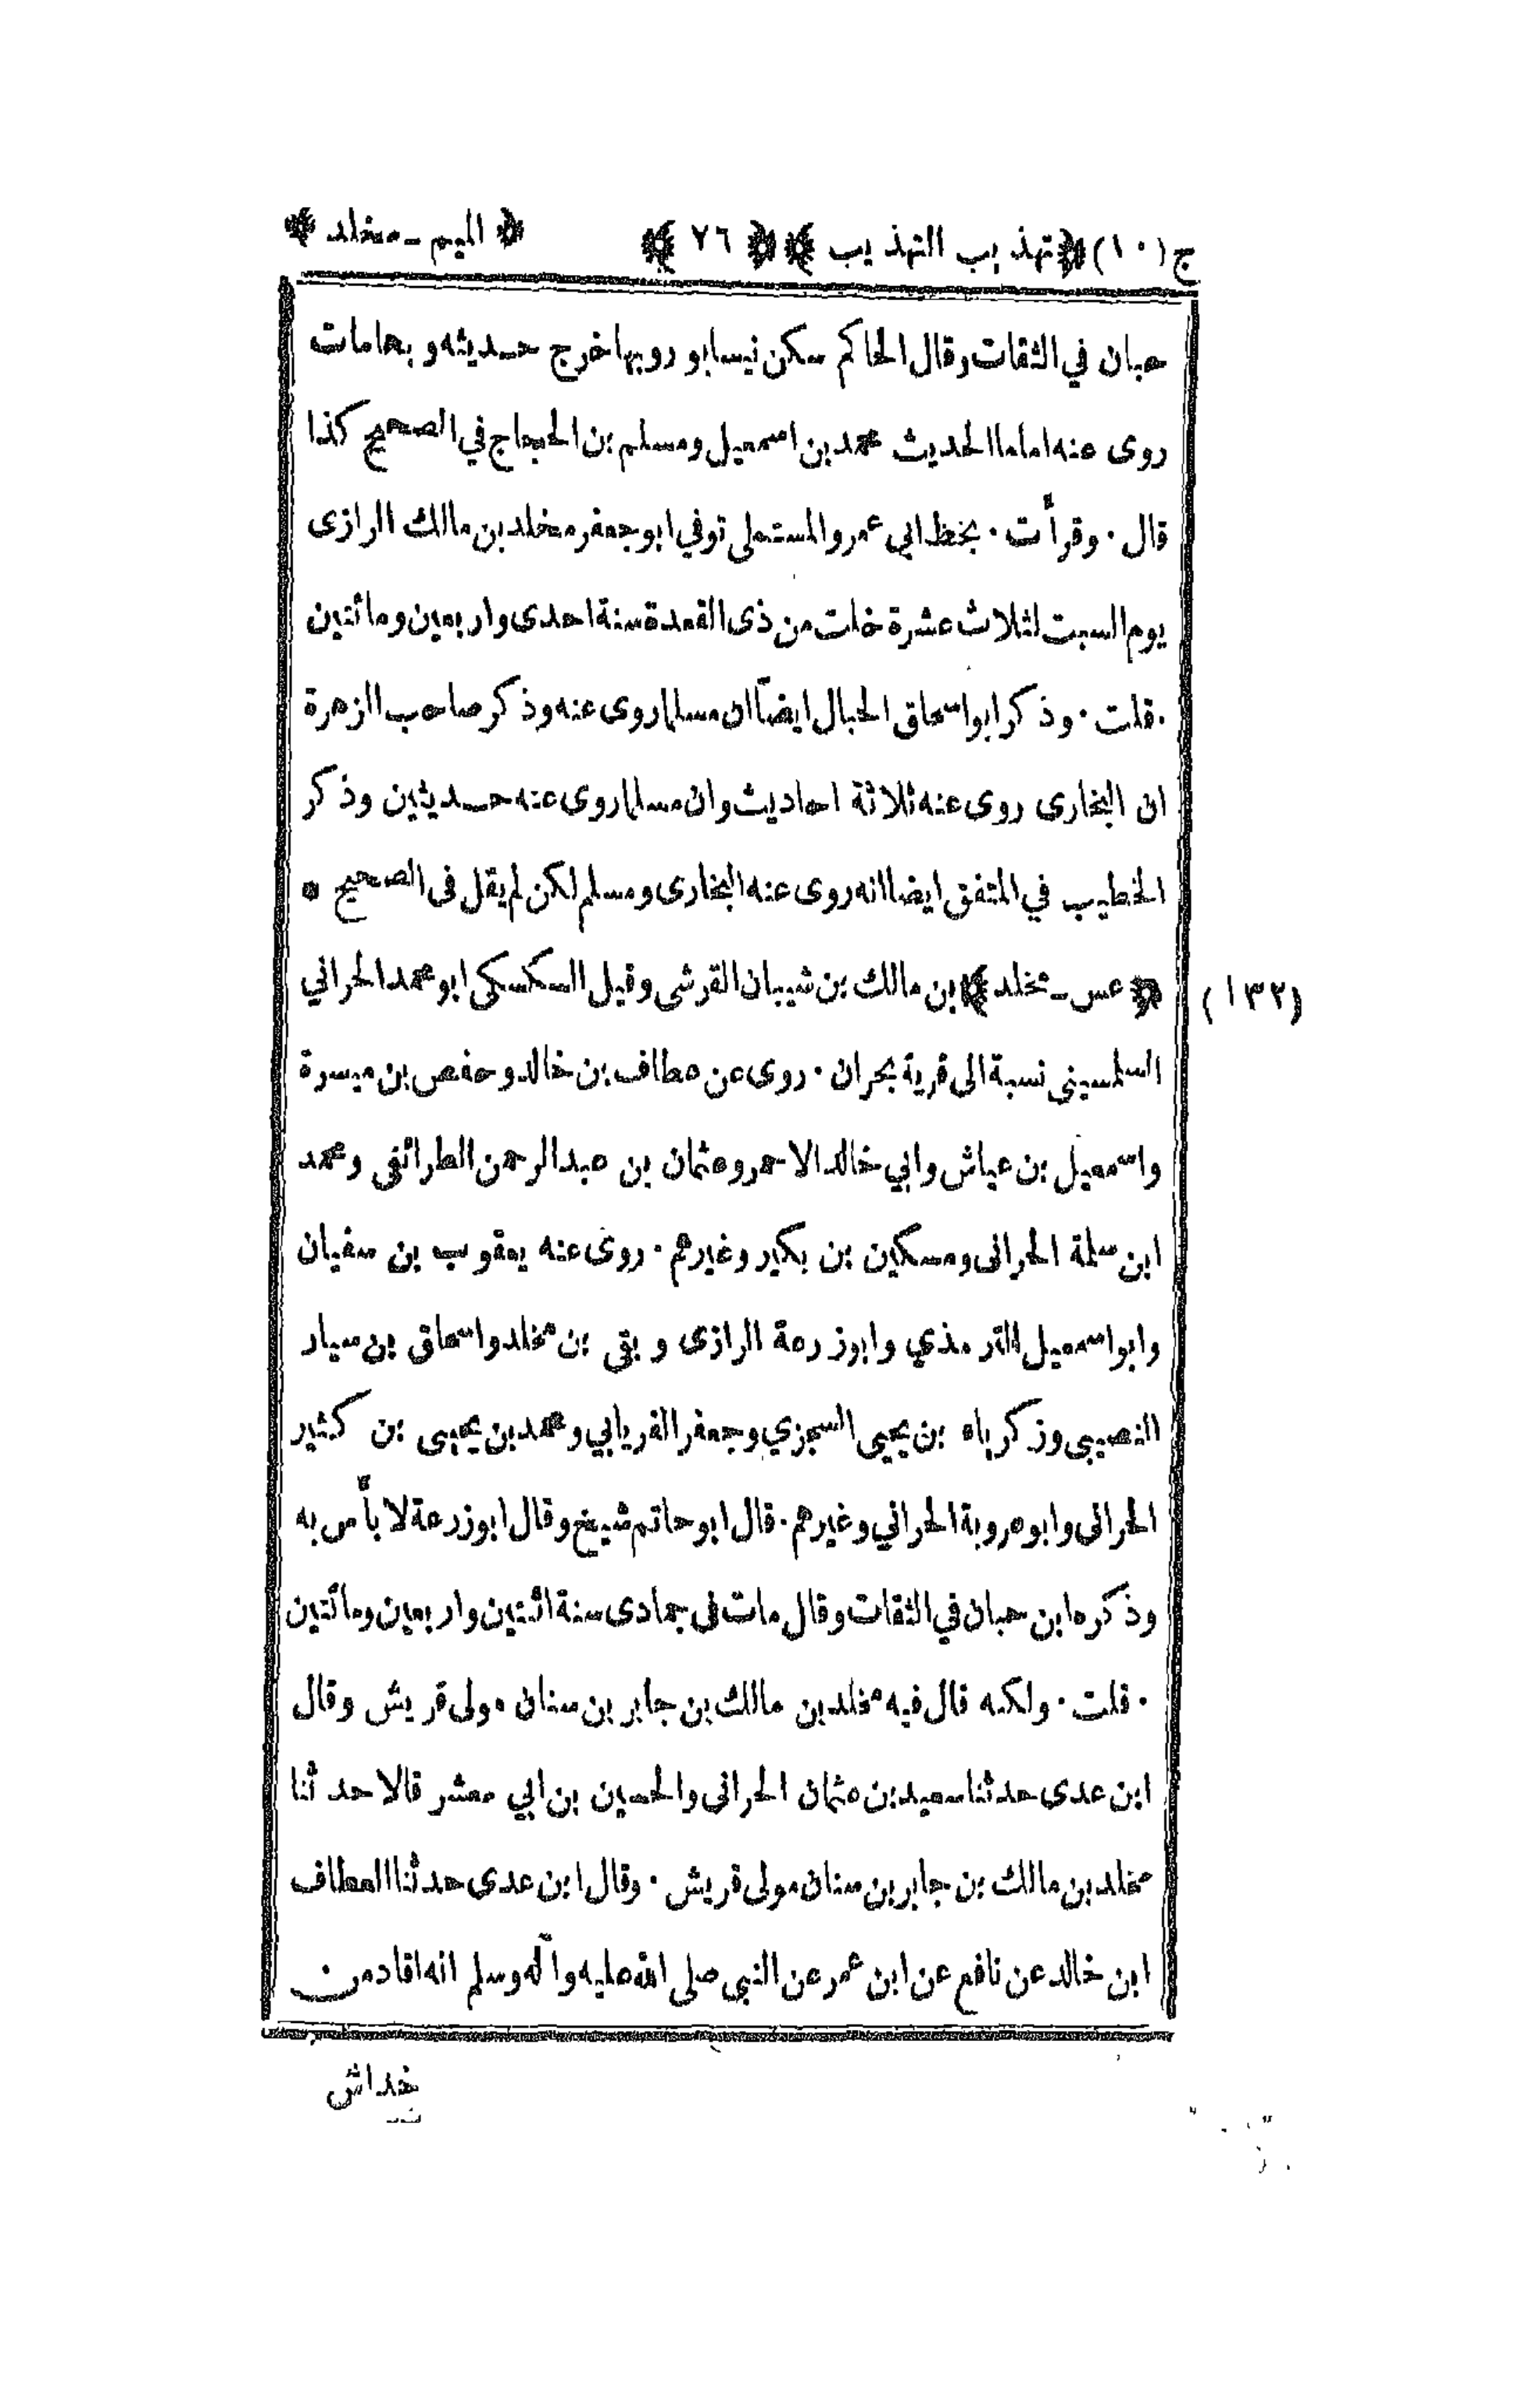 ج (١٠) ﴿تهذيب التهذيب﴾ ﴿٧٦﴾ ﴿الميم ـ مخلد﴾
حبان في الثقات وقال الحاكم سكن نيسابور وبها خرج حديثه وبها مات
روى عنه اماما الحديث محمد بن اسمعيل ومسلم بن الحجاج في الصحيح كذا
قال · وقرأت · بخط ابي عمرو المستملى توفي ابو جعفر مخلد بن مالك الرازى
يوم السبت لثلاث عشرة خلت من ذى القعدة سنة احدى واربعين ومائتين
· قلت · وذكر ابو اسحاق الحبال ايضاً ان مسلما روى عنه وذكر صاحب الزهرة
ان البخارى روى عنه ثلاثة احاديث وان مسلما روى عنه حديثين وذكر
الخطيب في المتفق ايضا انه روى عنه البخارى ومسلم لكن لم يقل فى الصحيح *
(١٣٢) ﴿عس ـ مخلد﴾ بن مالك بن شيبان القرشى وقيل السكسكى ابو محمد الحراني
السلمسيني نسبة الى قرية بحران · روى عن عطاف بن خالد وحفص بن ميسرة
واسمعيل بن عياش وابي خالد الاحمر وعثمان بن عبد الرحمن الطرائفى ومحمد
ابن سلمة الحرانى ومسكين بن بكير وغيرهم · روى عنه يعقوب بن سفيان
وابو اسمعيل الترمذي وابو زرعة الرازى وبقى بن مخلد واسحاق بن سيار
النصيبى وزكرياه بن يحيى السجزي وجعفر الفريابي ومحمد بن يحيى بن كثير
الحرانى وابو عروبة الحراني وغيرهم · قال ابو حاتم شيخ وقال ابو زرعة لا بأس به
وذكره ابن حبان في الثقات وقال مات فى جمادى سنة اثنتين واربعين ومائتين
· قلت · ولكنه قال فيه مخلد بن مالك بن جابر بن سنان مولى قريش وقال
ابن عدى حدثنا سعيد بن عثمان الحرانى والحسين بن ابي معشر قالا حدثنا
مخلد بن مالك بن جابر بن سنان مولى قريش · وقال ابن عدى حدثنا العطاف
ابن خالد عن نافع عن ابن عمر عن النبي صلى الله عليه وآله وسلم انه اقاد من
خداش